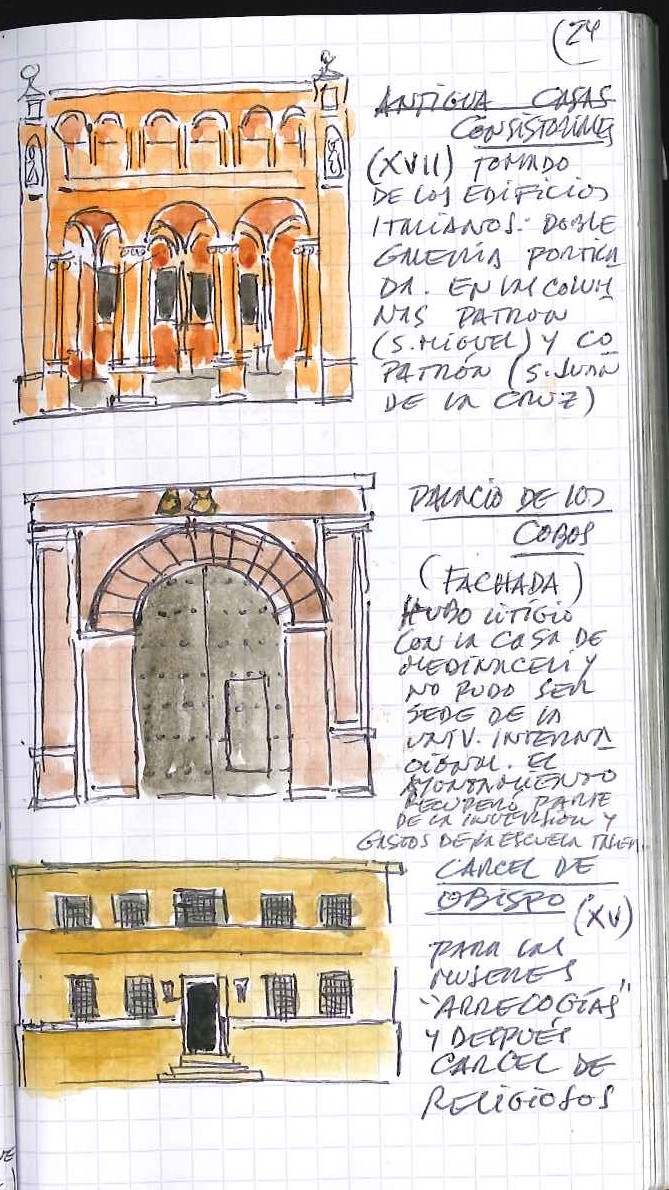 24
ANTIGUA CASAS
CONSISTORIALES
(XVII) TOMADO
DE LOS EDIFICIOS
ITALIANOS. DOBLE
GALERÍA PORTICA
DA. EN LAS COLUM
NAS PATRON
(S. MIGUEL) Y CO
PATRÓN (S. JUAN
DE LA CRUZ)
PALACIO DE LOS
COBOS
(FACHADA)
HUBO LITIGIO
CON LA CASA DE
MEDINACELI Y
NO PUDO SER
SEDE DE LA
UNIV. INTERNA
CIONAL. EL
AYUNTAMIENTO
RECUPERO PARTE
DE LA INVERSION Y
GASTOS DE LA ESCUELA TALLER.
CARCEL DE
OBISPO (XV)
PARA LAS
MUJERES
"ARRECOGÍAS"
Y DESPUÉS
CARCEL DE
RELIGIOSOS